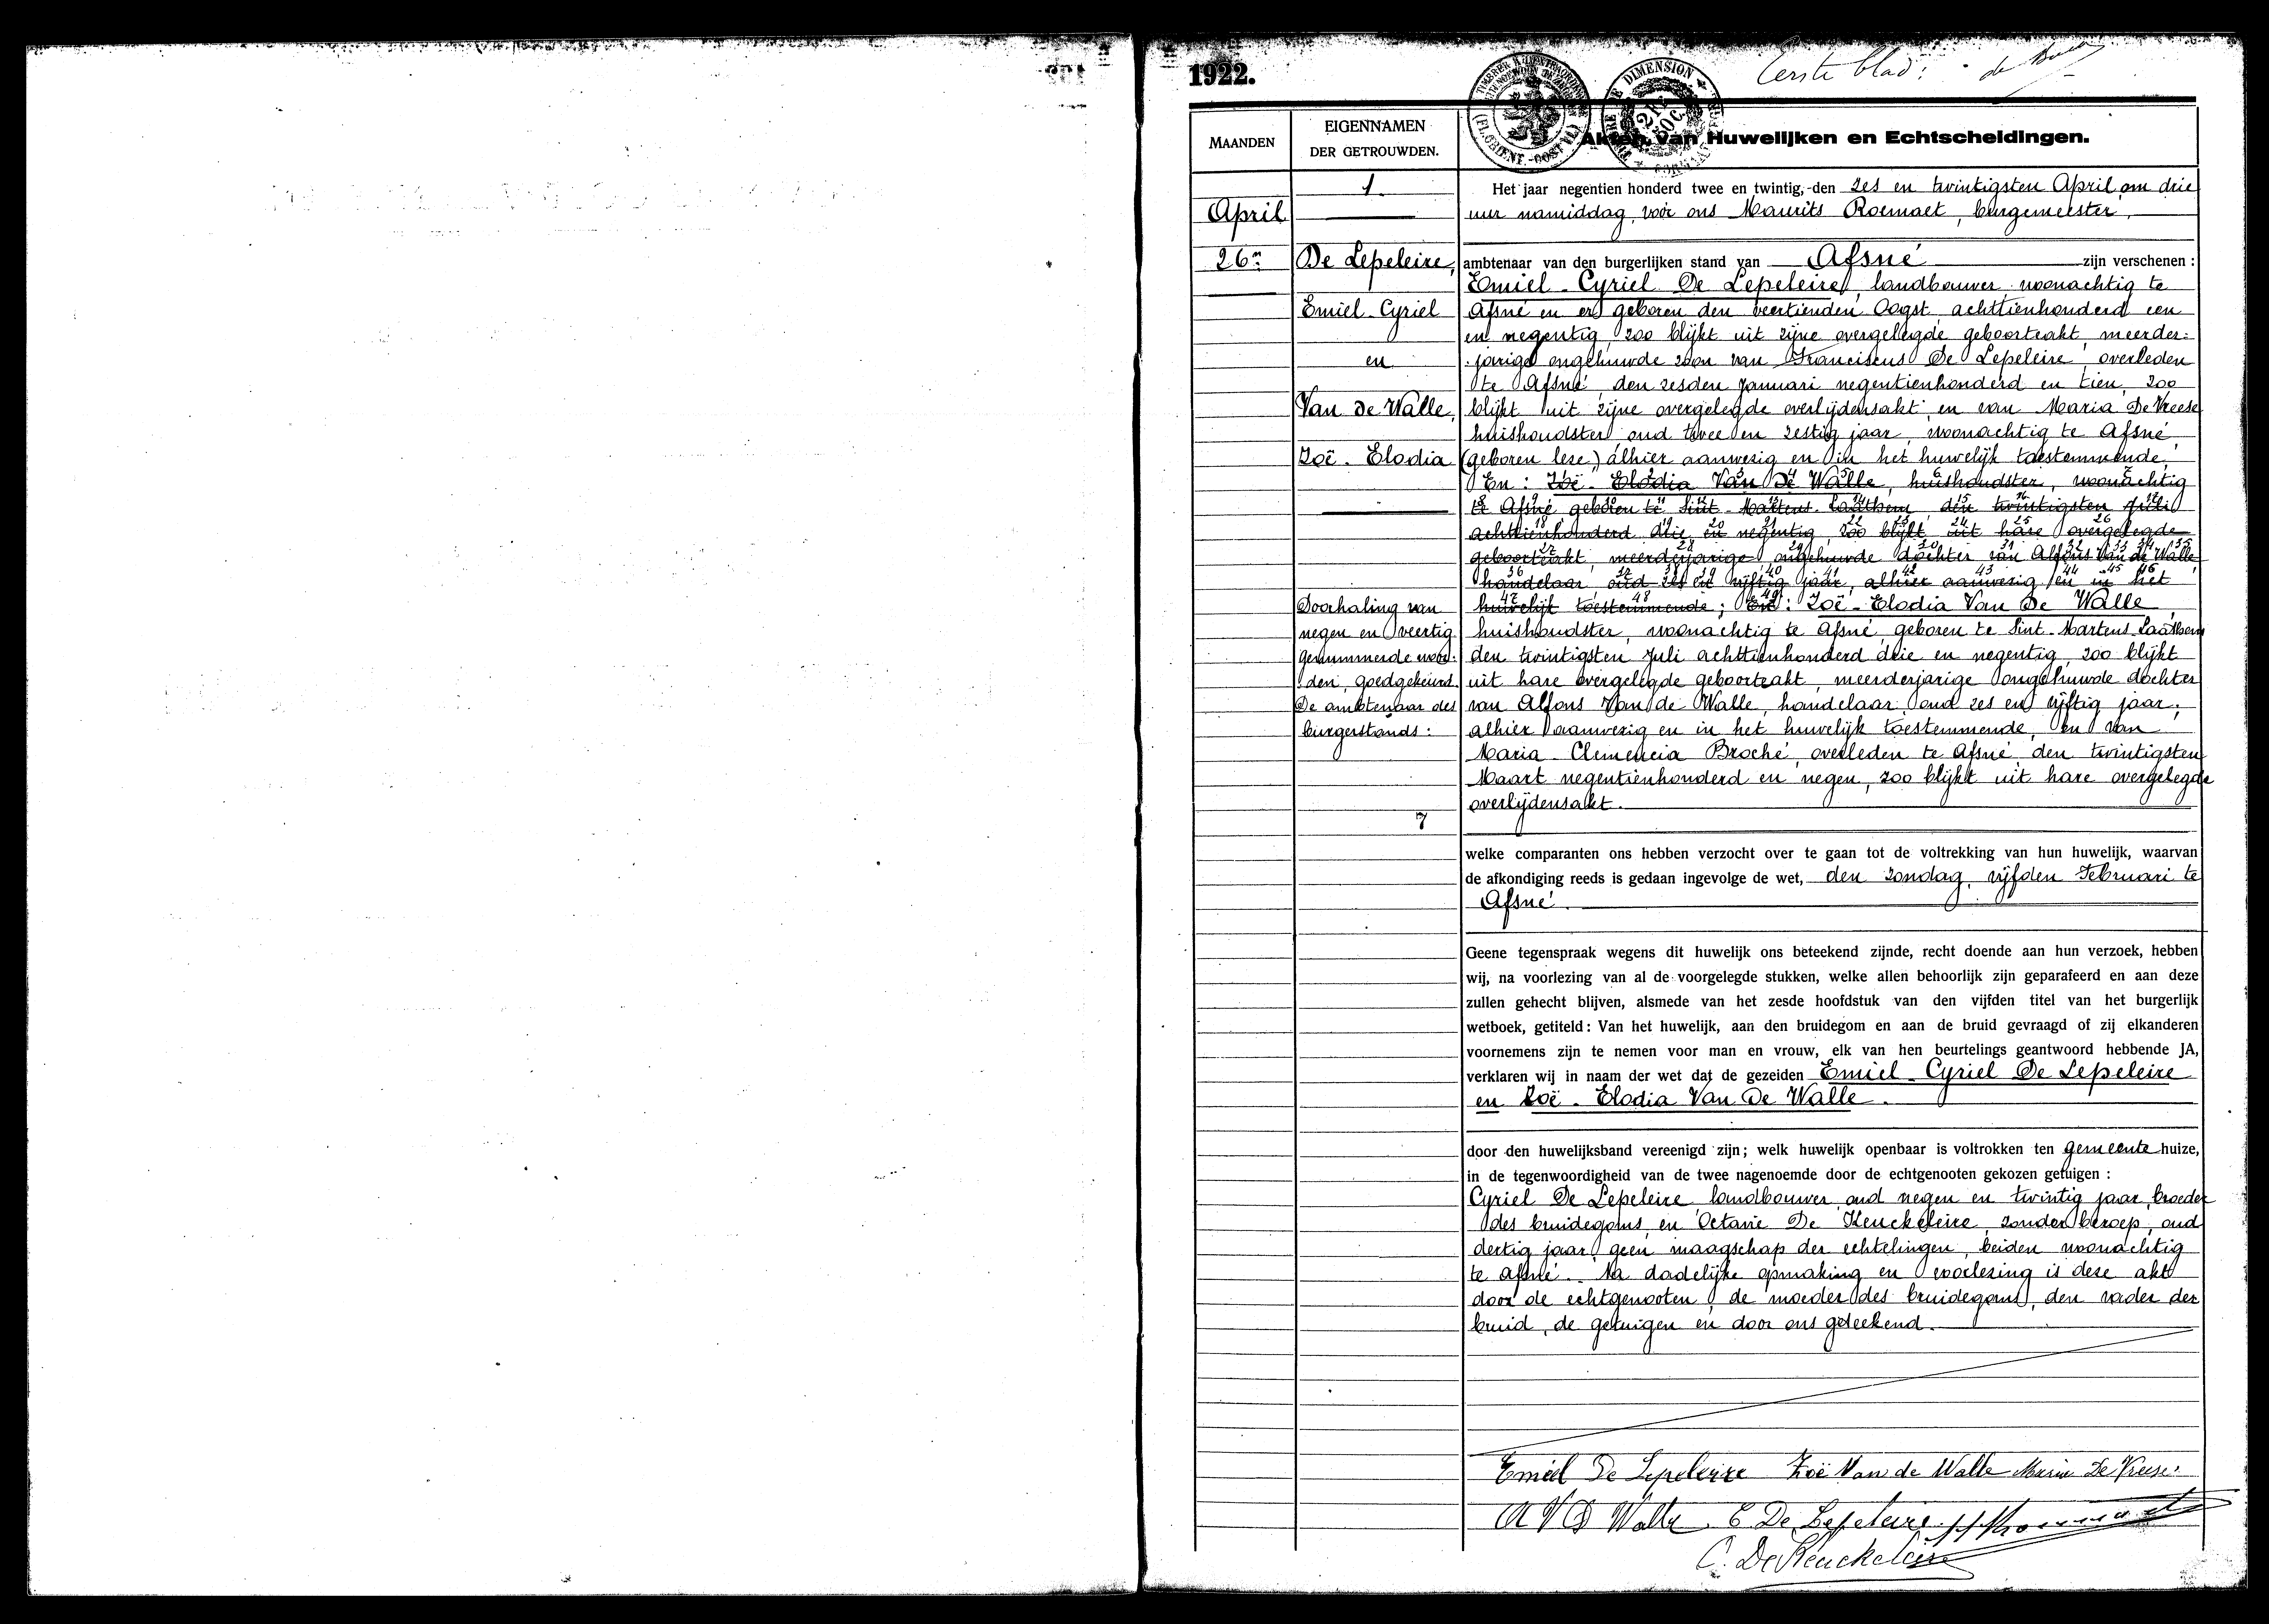 1922.
Eerste blad:
MAANDEN
EIGENNAMEN
DER GETROUWDEN.
Akten van Huwelijken en Echtscheidingen.
1
April
26n
De Lepeleire,
Emiel-Cyriel
en
Van de Walle,
Zoë-Elodia
Doorhaling van
negen en veertig
genummerde woor-
den, goedgekeurd.
De ambtenaar des
burgerstands:
Het jaar negentien honderd twee en twintig, den zes en twintigsten April, om drie
uur namiddag, voor ons Maurits Roemaet, burgemeester,
ambtenaar van den burgerlijken stand van Afsné zijn verschenen:
Emiel-Cyriel De Lepeleire, landbouwer, woonachtig te
Afsné en er geboren den veertienden Oogst achttienhonderd een
en negentig, zoo blijkt uit zijne overgelegde geboorteakt, meerder-
jarige ongehuwde zoon van Franciscus De Lepeleire, overleden
te Afsné, den zesden Januari negentienhonderd en tien, zoo
blijkt uit zijne overgelegde overlijdensakt en van Maria De Vreese
huishoudster oud twee en zestig jaar, woonachtig te Afsné,
(geboren lese) alhier aanwezig en in het huwelijk toestemmende,
En: Zoë-Elodia Van De Walle, huishoudster, woonachtig
te Afsné geboren te Sint-Martens-Laathem, den twintigsten Juli
achttienhonderd drie en negentig, zoo blijkt uit hare overgelegde
geboorteakt, meerderjarige ongehuwde dochter van Alfons Van de Walle,
handelaar, oud zes en vijftig jaar, alhier aanwezig en in het
huwelijk toestemmende; En: Zoë-Elodia Van De Walle,
huishoudster, woonachtig te Afsné, geboren te Sint-Martens-Laathem
den twintigsten Juli achttienhonderd drie en negentig, zoo blijkt
uit hare overgelegde geboorteakt, meerderjarige ongehuwde dochter
van Alfons Van de Walle, handelaar, oud zes en vijftig jaar,
alhier aanwezig en in het huwelijk toestemmende, en van
Maria-Clemencia Broché, overleden te Afsné, den twintigsten
Maart negentienhonderd en negen, zoo blijkt uit hare overgelegde
overlijdensakt.
welke comparanten ons hebben verzocht over te gaan tot de voltrekking van hun huwelijk, waarvan
de afkondiging reeds is gedaan ingevolge de wet, den zondag, vijfden Februari te
Afsné.
Geene tegenspraak wegens dit huwelijk ons beteekend zijnde, recht doende aan hun verzoek, hebben
wij, na voorlezing van al de voorgelegde stukken, welke allen behoorlijk zijn geparafeerd en aan deze
zullen gehecht blijven, alsmede van het zesde hoofdstuk van den vijfden titel van het burgerlijk
wetboek, getiteld: Van het huwelijk, aan den bruidegom en aan de bruid gevraagd of zij elkanderen
voornemens zijn te nemen voor man en vrouw, elk van hen beurtelings geantwoord hebbende JA,
verklaren wij in naam der wet dat de gezeiden Emiel-Cyriel De Lepeleire
en Zoë-Elodia Van De Walle.
door den huwelijksband vereenigd zijn; welk huwelijk openbaar is voltrokken ten gemeente huize,
in de tegenwoordigheid van de twee nagenoemde door de echtgenooten gekozen getuigen:
Cyriel De Lepeleire landbouwer, oud negen en twintig jaar, broeder
des bruidegoms, en Octavie De Keuckeleire, zonder beroep, oud
dertig jaar, geen maagschap der echtelingen, beiden woonachtig
te Afsné. Na dadelijke opmaking en voorlezing is deze akt
door de echtgenooten, de moeder des bruidegoms, den vader der
bruid, de getuigen en door ons geteekend.
Emiel De Lepeleire Zoë Van de Walle Maria De Vreese.
A V D Walle C De Lepeleire
O. De Keuckeleire